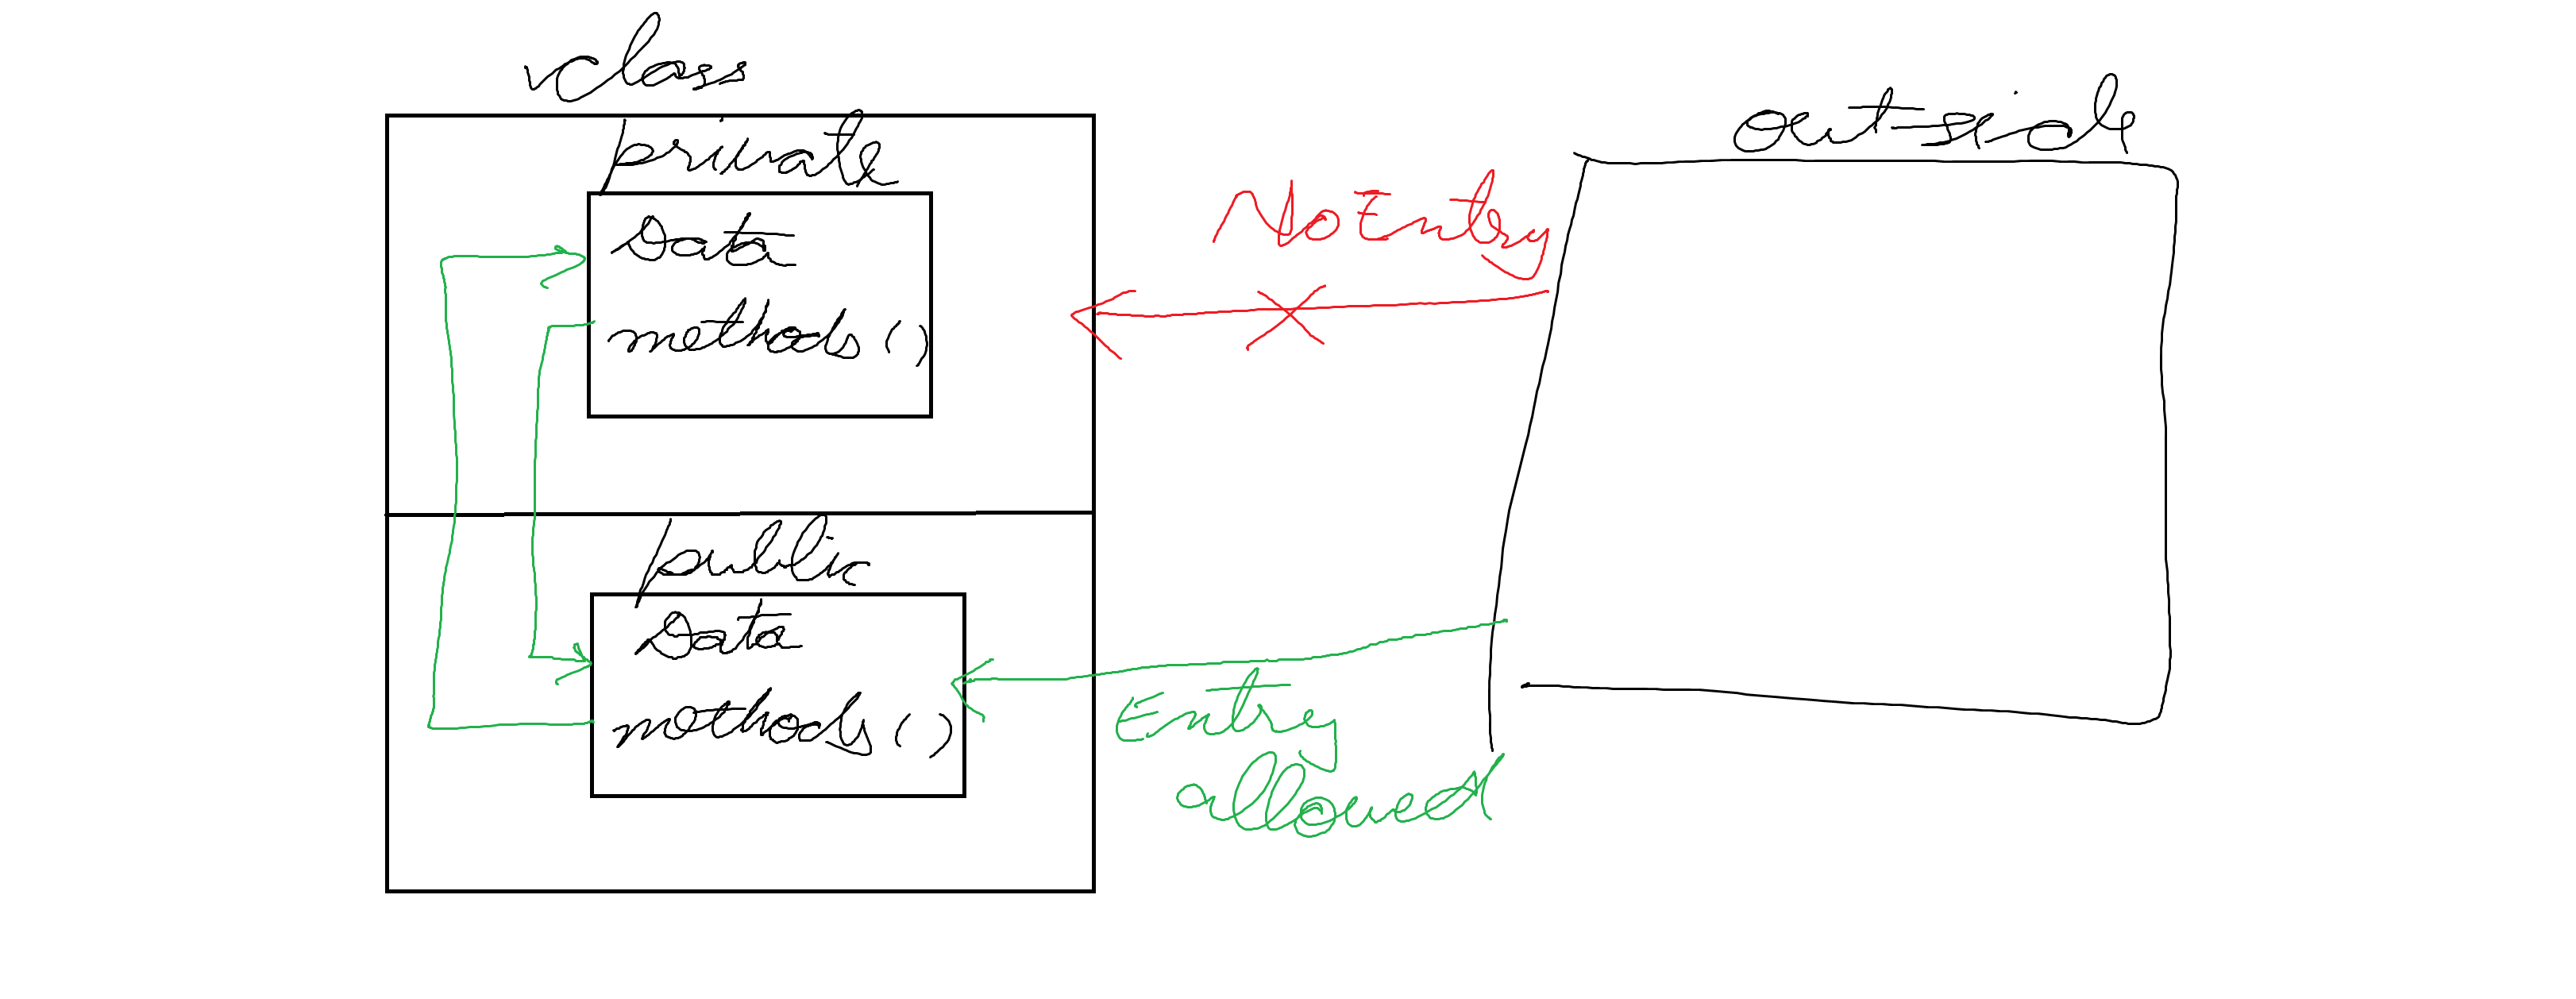 class
private
Data
methods ( )
public
Data
methods ( )
No Entry
Entry
allowed
out-side